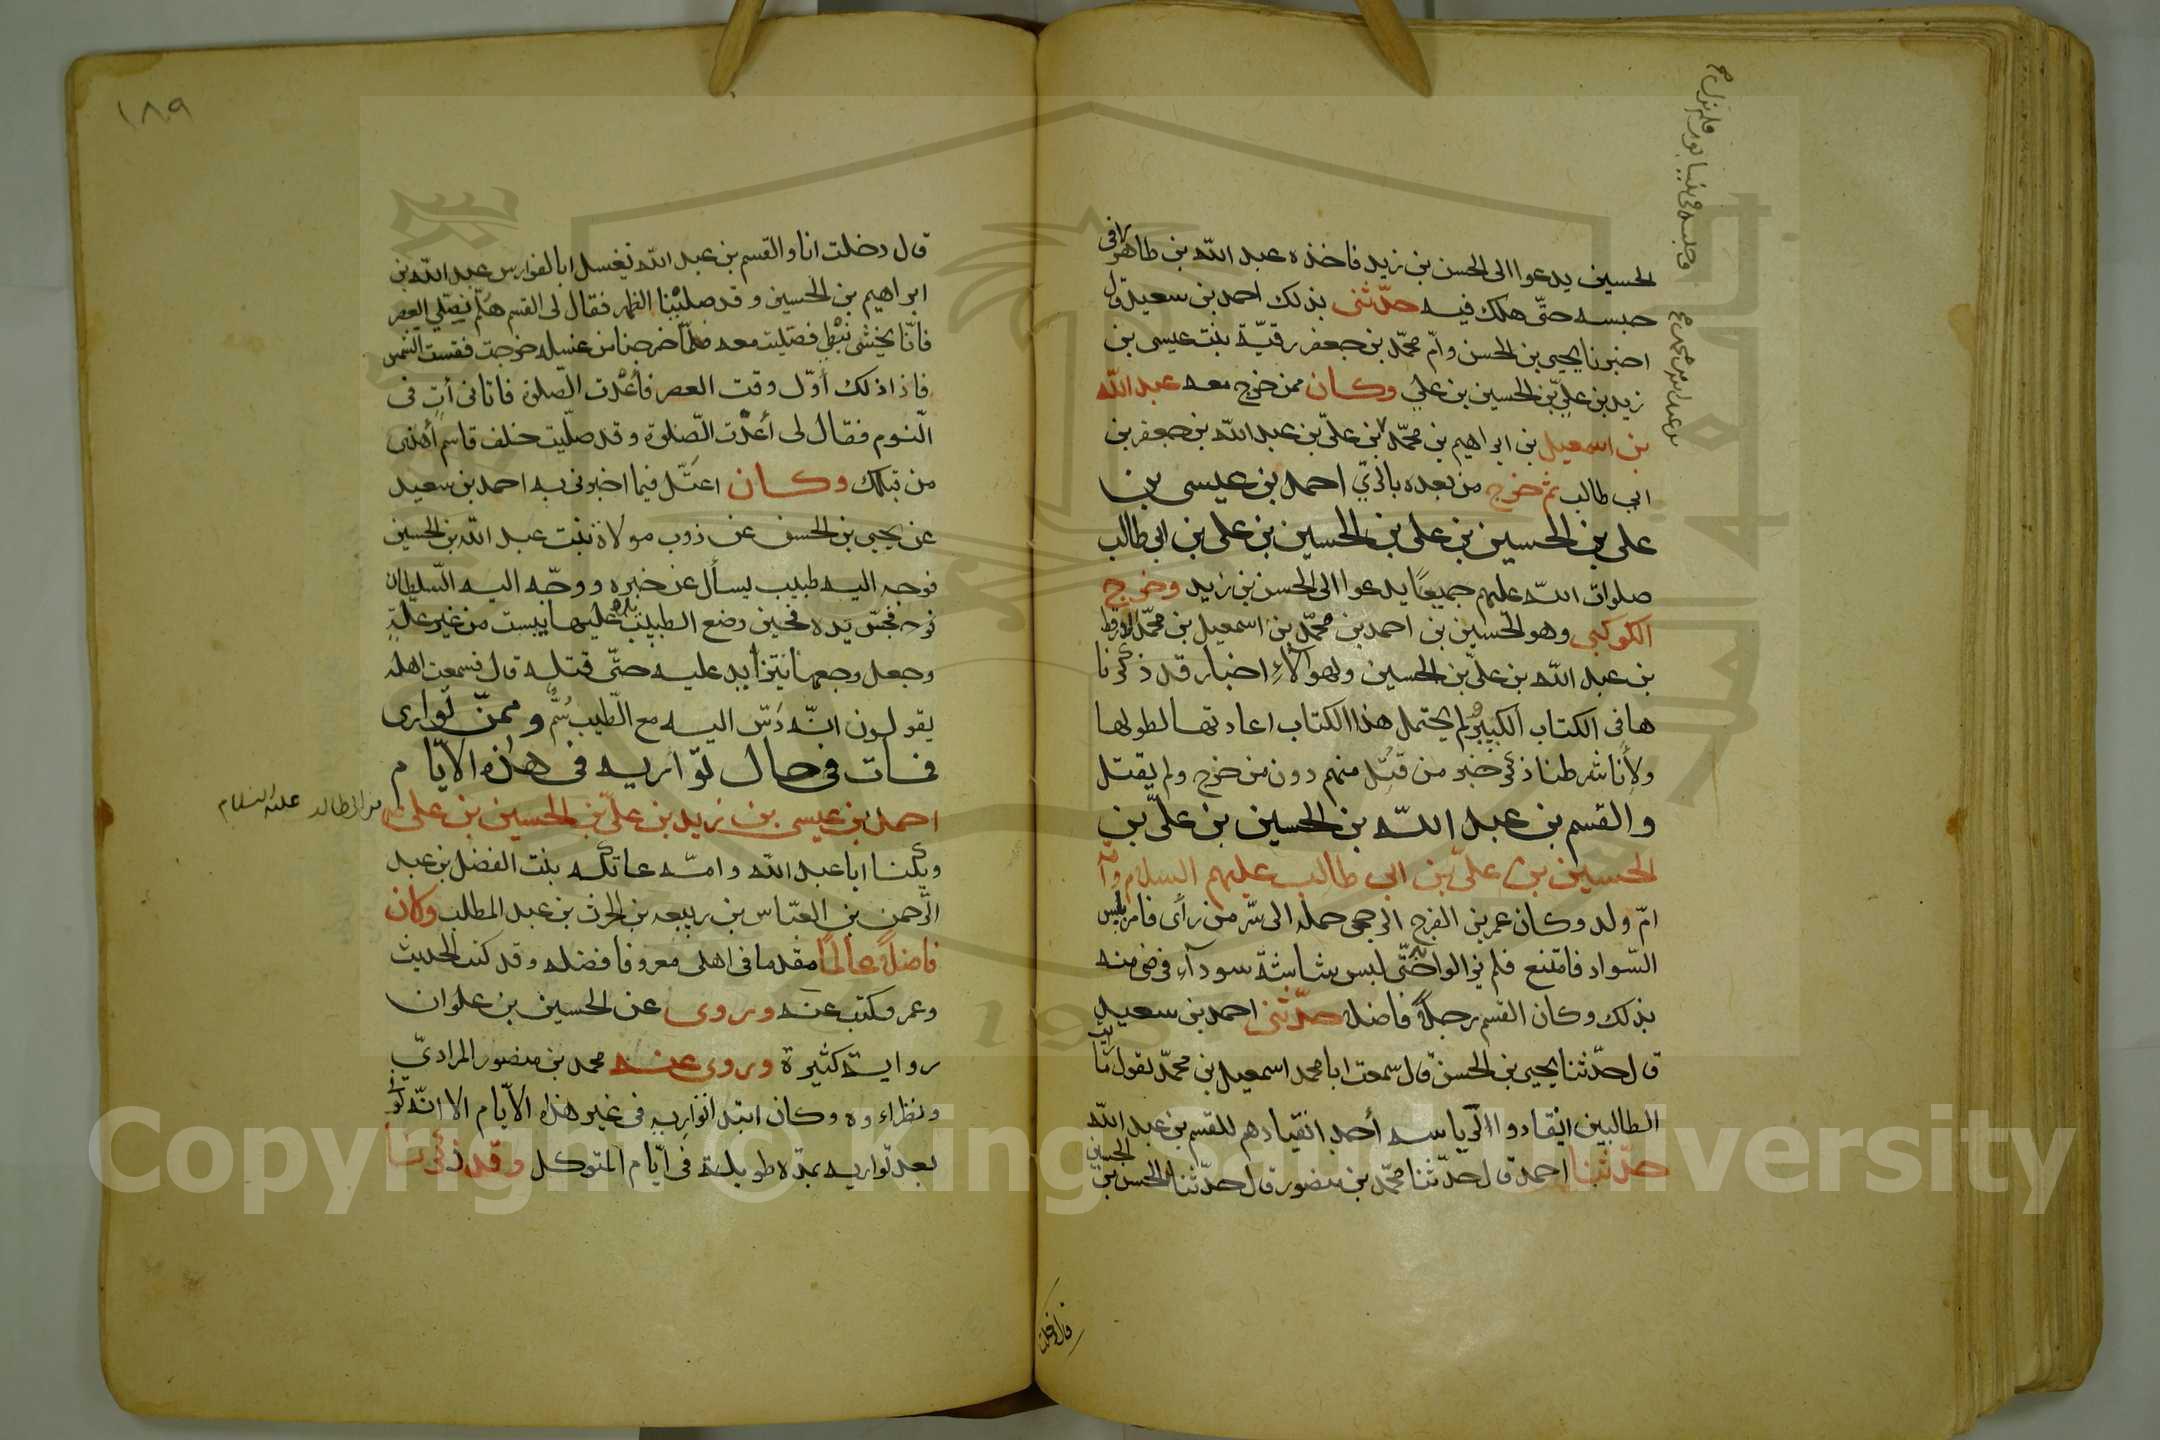 الحسين يدعوا الى الحسن بن زيد فاخذه عبد الله بن طاهر
حبسه حتّى هلك فيه حدّثنى بذلك احمد بن سعيد قال
اخبرنا يحيى بن الحسن وامّ محمّد بن جعفر رقيّة بنت عيسى بن
زيد بن علىّ بن الحسين بن علي وكان ممن خرج معه عبد الله
بن اسمعيل بن ابراهيم بن محمّد بن علىّ بن عبد الله بن جعفر بن
ابي طالب ثم خرج من بعده بالرّي احمد بن عيسى بن
على بن الحسين بن على بن الحسين بن على بن ابى طالب
صلوات الله عليهم جميعًا يدعوا الى الحسن بن زيد وخرج
الكوكبى وهو الحسين بن احمد بن محمّد بن اسمعيل بن محمّد الارقط
بن عبد الله بن علىّ بن الحسين ولهولآءِ اخبار قد ذكرنا
ها فى الكتاب الكبير لم يحتمل هذا الكتاب اعادتها لطولها
ولأنا شرطنا ذكر خبر من قُتِل منهم دون من خرج ولم يقتل
والقسم بن عبد الله بن الحسين بن علىّ بن
الحسين بن علىّ بن ابى طالب عليهم السلام وأ
امّ ولد وكان عمر بن الفرج الرجحى حمله الى سّر من رأى فامر بلبس
السّواد فامتنع فلم يزالوا حتّى لبس شاشية سودآء فرضى منه
بذلك وكان القسم رجلاً فاضلا حدّثنى احمد بن سعيد
قال حدّثنا يحيى بن الحسن قال سمعت ابا محمد اسمعيل بن محمّد يقول ما رايت
الطالبين انقادوا الرّياسه أحد انقيادهم للقسم بن عبد الله
حدّثنا احمد قال حدّثنا محمّد بن منصور قال حدّثنا الحسن بن الحسين
١٨٩
قال دخلت انا والقسم بن عبد الله نغسل ابا الفوارس عبد الله بن
ابراهيم بن الحسين وقد صليْنا الظهر فقال لى القسم هلمّ نصّلي العصر
فانّا نخشى نبْطِي فصليت معه فلمّا خرجنا من غسله خرجت فقست الشمس
فاذا ذلك أوّل وقت العصر فأعْدت الصّلوة فاتانى أتٍ فى
النّوم فقال لى أعْدْت الصّلوة وقد صلّيت خلف قاسم
من قبلك وكان اعتّل فيما اخبرونى به احمد بن سعيد
عن يحيى بن الحسن عن ذوب مولاة بنت عبد الله بن الحسين
فوجه اليه طبيب يسأل عن خبره ووجّه اليه السّلطان
فوجه فجسّ يده فحين وضع الطبيب يده عليها يبست من غير علّةٍ
وجعل وجعها يتزايد عليه حتّى قتله قال فسمعت اهله
يقولون انّه دَسّ اليه مع الطّبيب سُمٌّ وممّن توارى
فمات فى حال تواريه فى هذه الايّام
احمد بن عيسى بن زيد بن علىّ بن الحسين بن على
بن ابى طالب عليه السلام
ويكنا ابا عبد الله وامّه عاتكه بنت الفضل بن عبد
الرّحمن بن العبّاس بن ربيعه بن الحرث بن عبد المطلب وكان
فاضلاً عالمًا مقدما فى اهله معروفا فضله وقد كتب الحديث
وعمر وكتب عنه وروى عن الحسين بن علوان
رواية كثيرة وروى عنه محمد بن منصور المرادىّ
ونظراءوه وكان ابتدا تواريه فى غير هذه الأيّام الا انّه
بعد تواريه بمدّه طويلة فى ايّام المتوكل وقد ذكرنا
Copyright © King Saud University